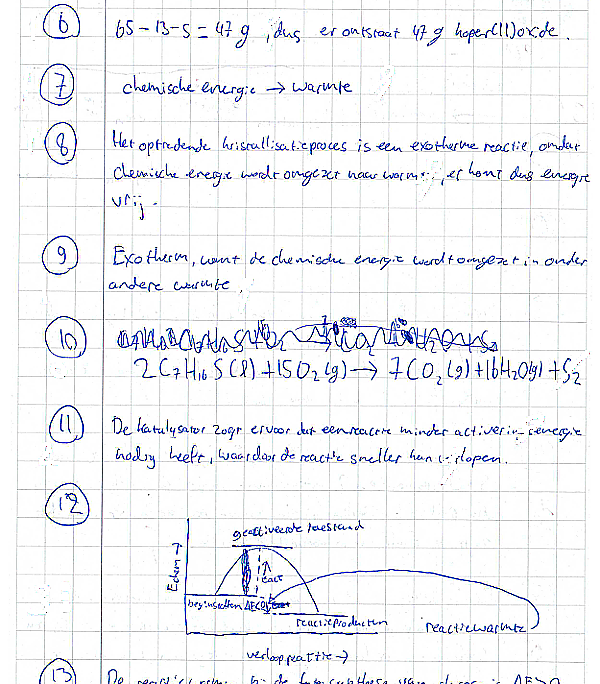 6 65 - 13 - 5 = 47 g, dus er ontstaat 47 g koper(II)oxide.
7 chemische energie → warmte
8 Het optredende kristallisatieproces is een exotherme reactie, omdat
chemische energie wordt omgezet naar warmte, er komt dus energie
vrij.
9 Exotherm, want de chemische energie werdt omgezet in onder
andere warmte.
10
2 C7H16S(l) + 15 O2(g) → 7 CO2(g) + 16 H2O(g) + S2
11 De katalysator zorgt ervoor dat een reactie minder activeringsenergie
nodig heeft, waardoor de reactie sneller kan verlopen.
12
geactiveerde toestand
Echem →
Eact
beginstoffen ΔE<0
reactieproducten reactiewarmte
verloop reactie →
13 De bij de van is ΔE>0